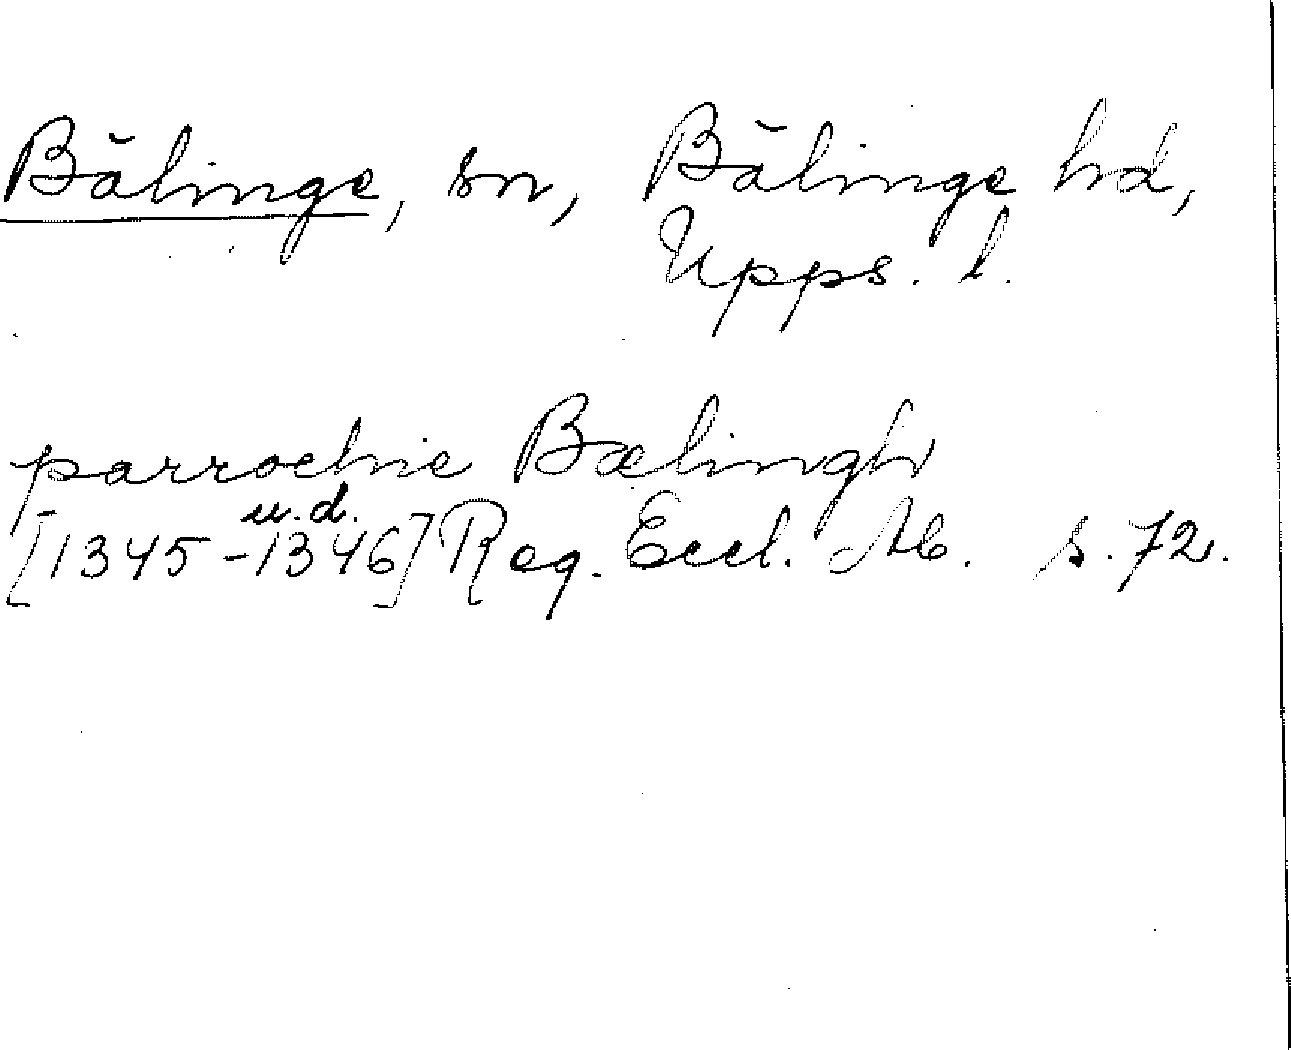 Bälinge, sn, Bälinge hd,
Upps. l.
parrochie Bælingh
u.d.
[1345-1346] Reg. Eccl. Ab. s. 72.